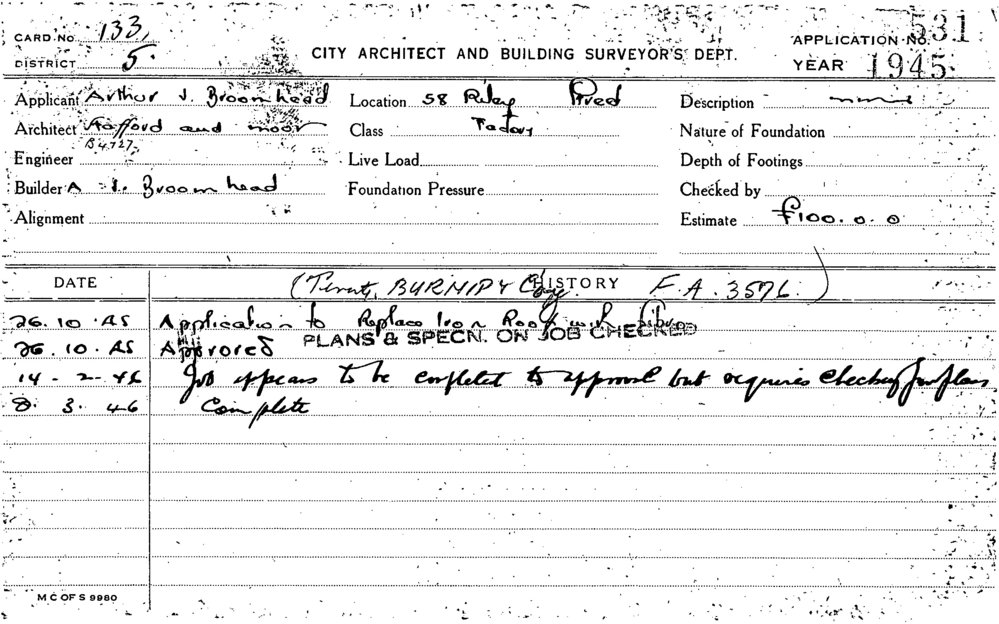 CARD No 133,
DISTRICT 5.
CITY ARCHITECT AND BUILDING SURVEYOR'S DEPT.
APPLICATION No 531
YEAR 1945.
Applicant Arthur J. Broomhead Location 58 Riley Description
Architect and moor Class Factory Nature of Foundation
B4727.
Engineer Live Load Depth of Footings
Builder A J. Broomhead Foundation Pressure Checked by
Alignment Estimate £100.0.0
DATE HISTORY
(Tenant, BURNIPY Coy. F.A. 3576.)
26.10.45 Application to Replace Iron Roof with Fibro
PLANS & SPECN. ON JOB CHECKED
26.10.45 Approved
14-2-46 Job appears to be completed to approval but requires checking from plans.
8.3.46 Complete
M C OF S 9980